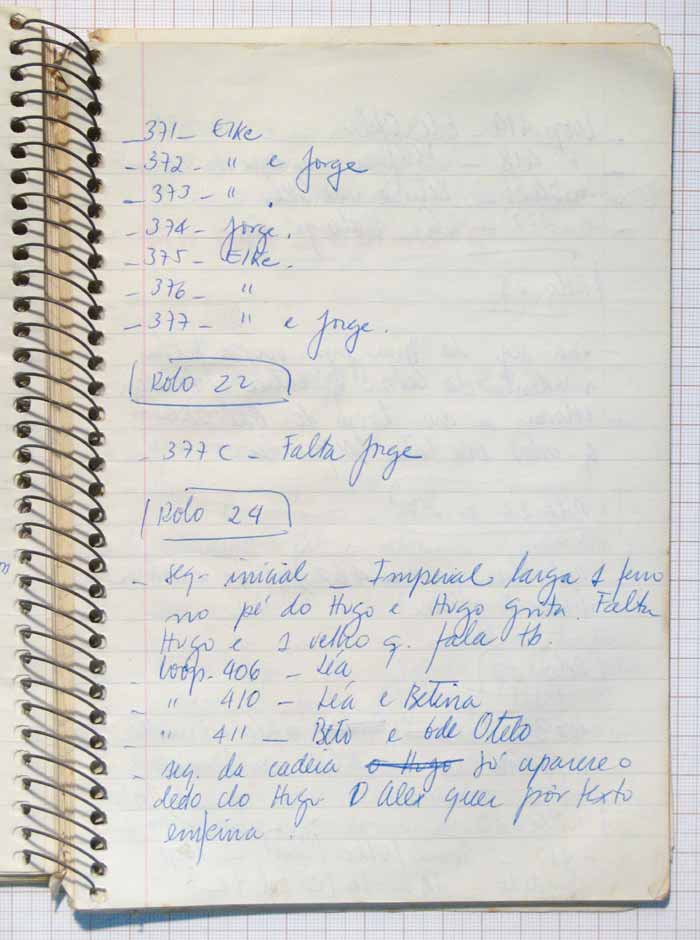 _ 371 _ Elke
_ 372 _ " e Jorge
_ 373 _ " .
_ 374 _ Jorge.
_ 375 _ Elke.
_ 376 _ "
_ 377 _ " e Jorge.
Rolo 22
_ 377 C _ Falta Jorge
Rolo 24
_ seq. inicial _ Imperial larga 1 ferro
no pé do Hugo e Hugo grita. Falta
Hugo e 1 velho q. fala tb.
_ loop. 406 _ Léa
_ " 410 _ Léa e Betina
_ " 411 _ Beto e Otelo
_ seq. da cadeia o Hugo só aparece o
dedo do Hugo. O Alex quer pôr texto
em cima.